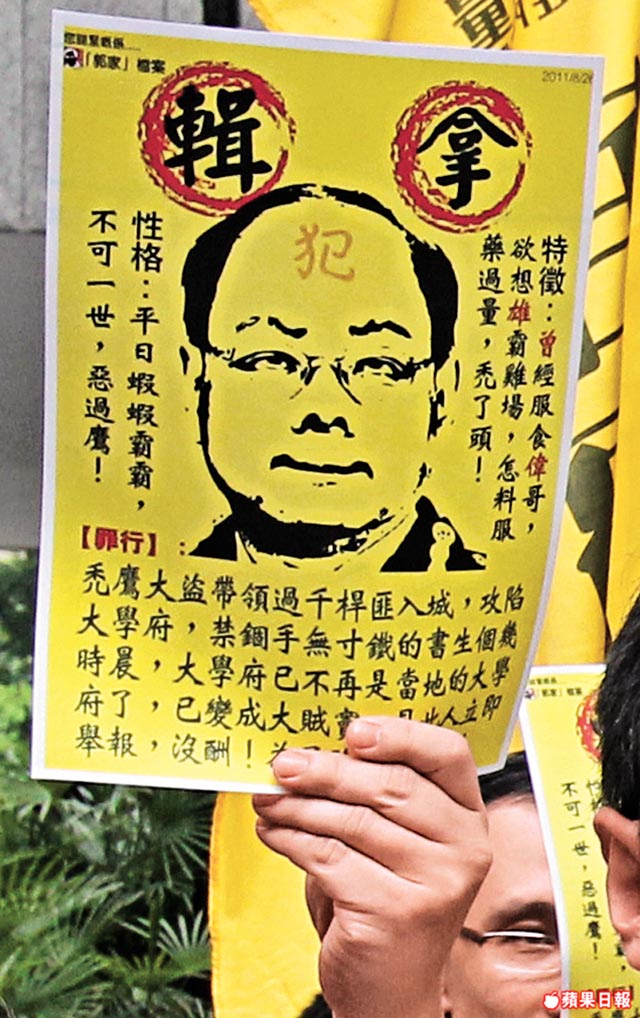 「郭家」檔案
輯
拿
犯
特徵：曾經服食偉哥，
欲想雄霸雞場，怎料服
藥過量，禿了頭！
性格：平日蝦蝦霸霸，
不可一世，惡過鷹！
【罪行】：
禿鷹大盜帶領過千桿匪入城，攻陷
大學府，禁錮手無寸鐵的書生個幾
時晨，大學府已不再是當地的大學
府了，已變成大賊竇 此人立即
舉報，沒酬！
「郭家」檔案
不可一世，惡過鷹！
蘋果日報